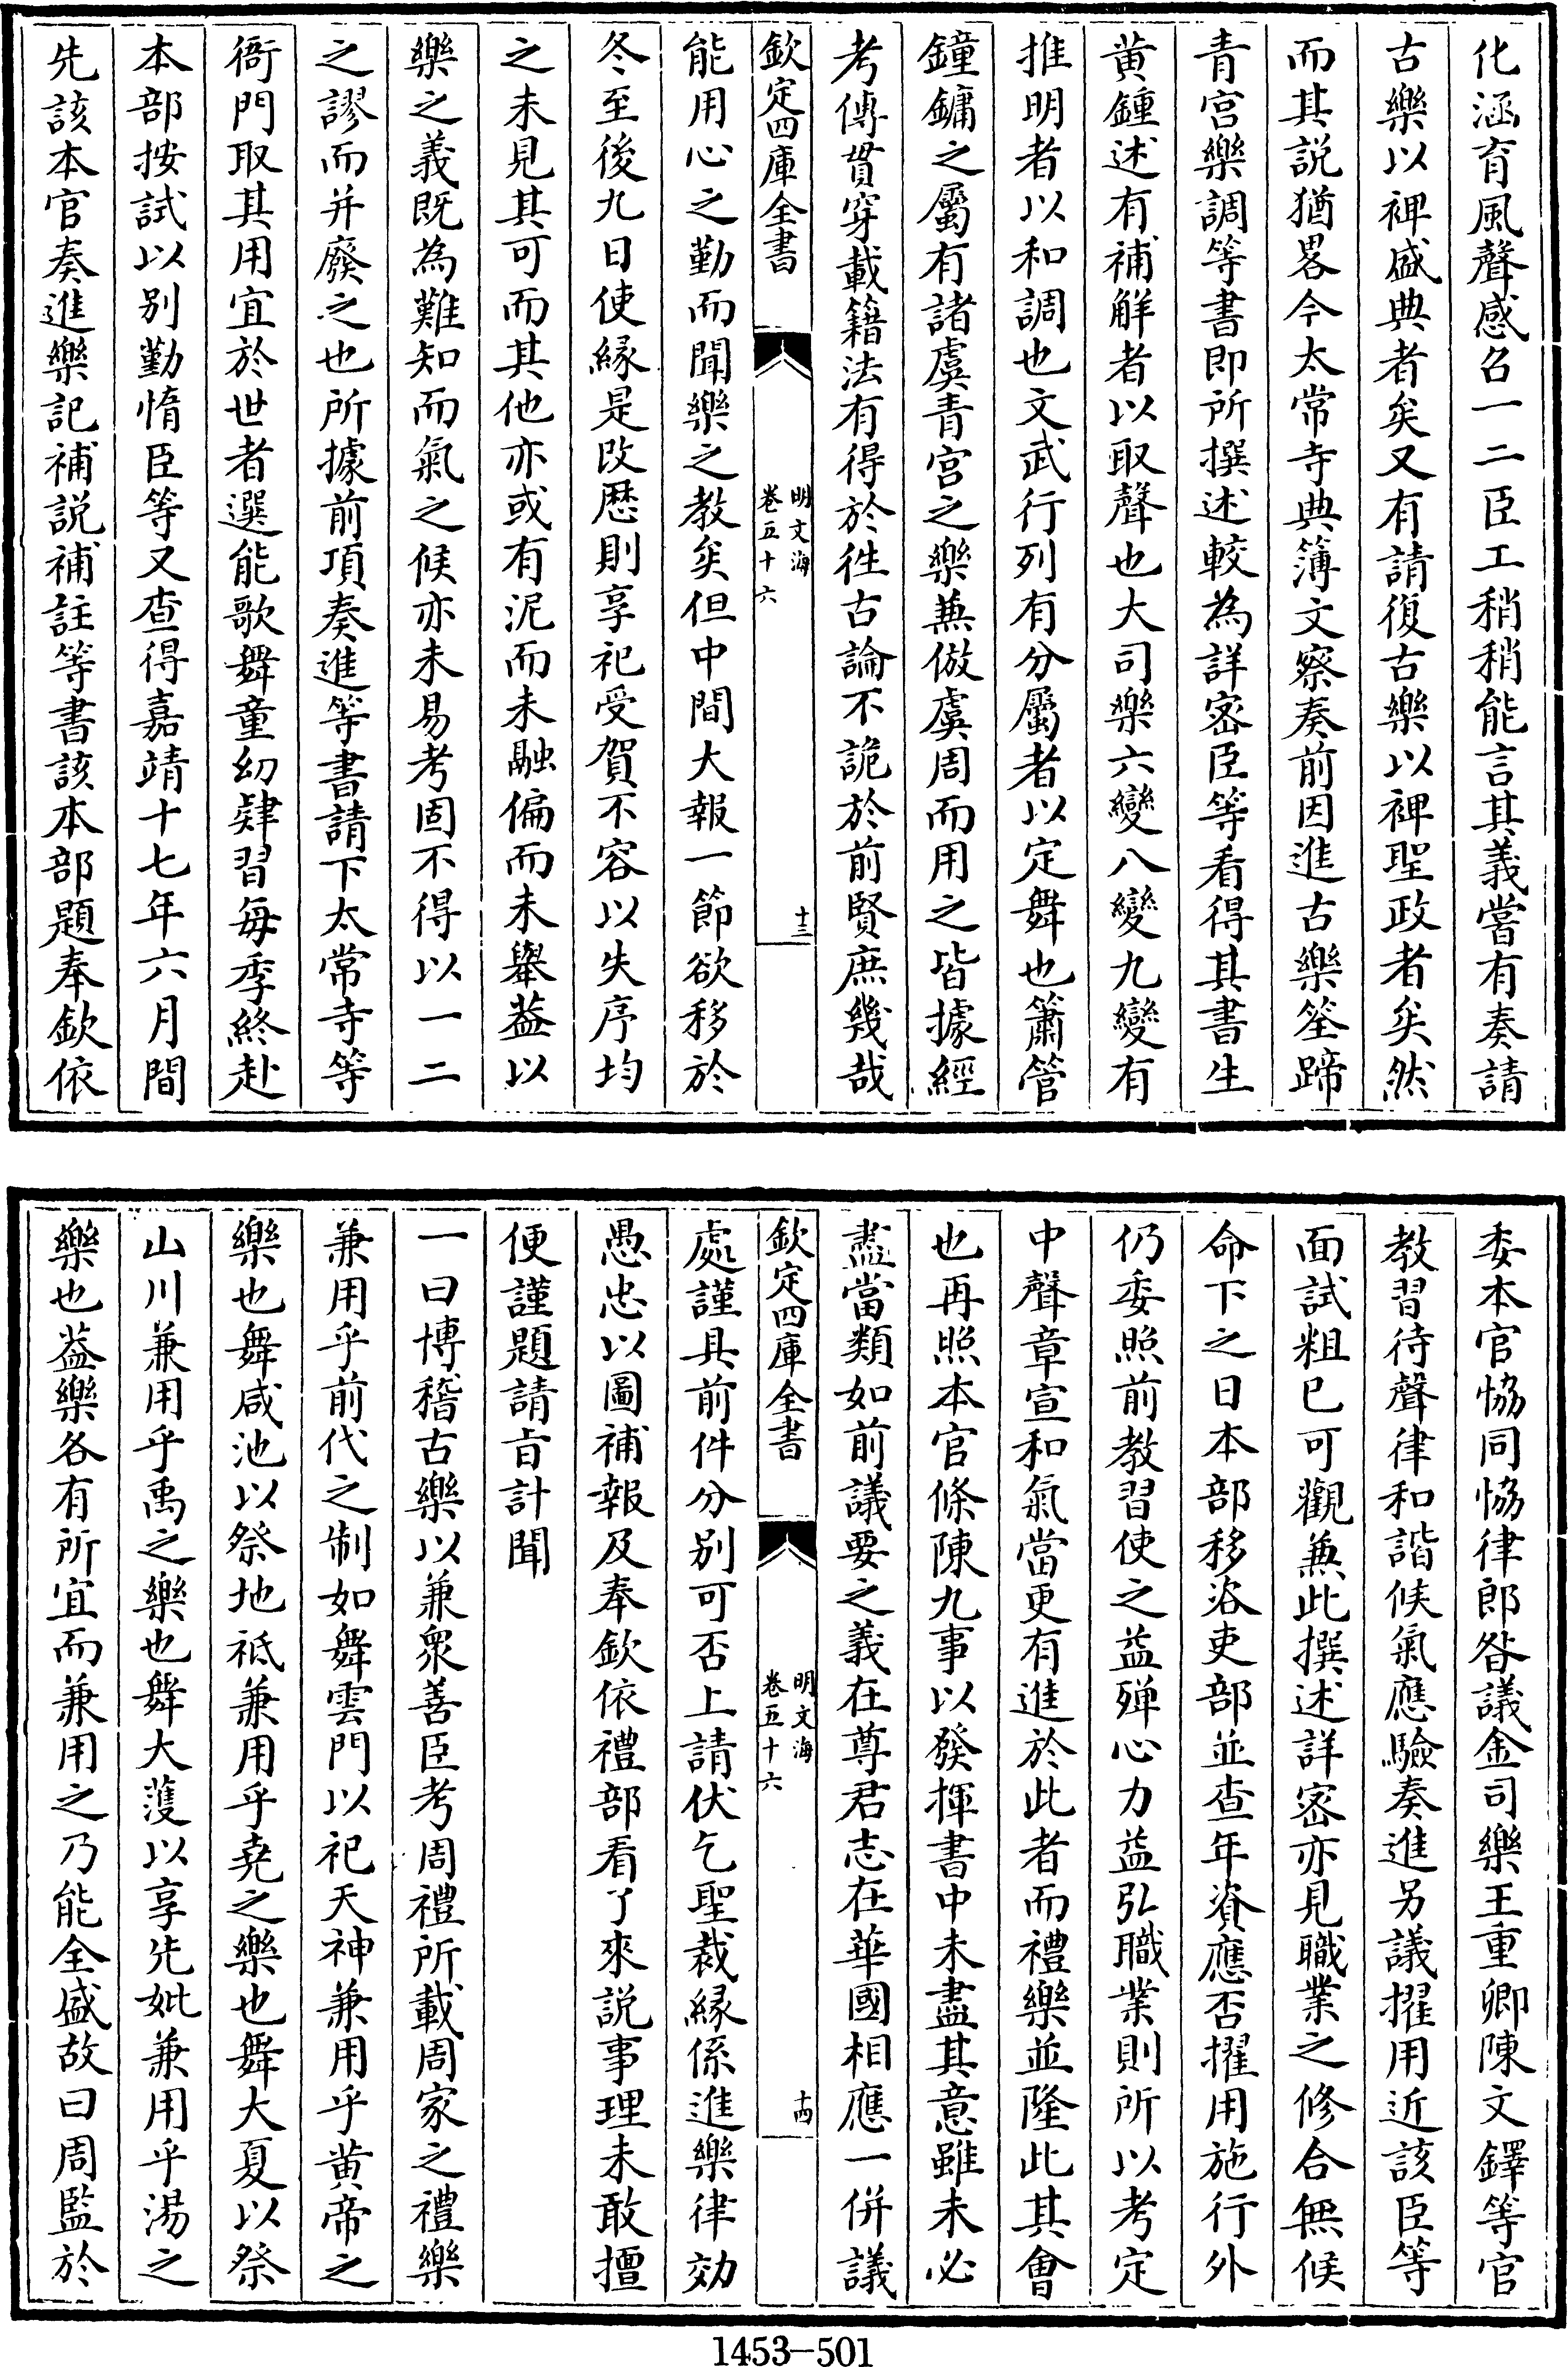 化涵育風聲感召一二臣工稍稍能言其義嘗有奏請
古樂以裨盛典者矣又有請復古樂以裨聖政者矣然
而其説猶畧今太常寺典簿文察奏前因進古樂筌蹄
青宮樂調等書即所撰述較為詳宻臣等看得其書生
黄鍾述有補解者以取聲也大司樂六變八變九變有
推明者以和調也文武行列有分屬者以定舞也簫管
鐘鏞之屬有諸虞青宮之樂兼倣虞周而用之皆據經
考傳貫穿載籍法有得於徃古論不詭於前賢庶幾哉
欽定四庫全書
明文海
卷五十六
十三
能用心之勤而聞樂之教矣但中間大報一節欲移於
冬至後九日使縁是改厯則享祀受賀不容以失序均
之未見其可而其他亦或有泥而未融偏而未舉葢以
樂之義既為難知而氣之候亦未易考固不得以一二
之謬而并廢之也所據前項奏進等書請下太常寺等
衙門取其用宜於世者選能歌舞童幼肄習每季終赴
本部按試以别勤惰臣等又查得嘉靖十七年六月間
先該本官奏進樂記補説補註等書該本部題奉欽依
委本官恊同恊律郎昝議金司樂王重卿陳文鐸等官
教習待聲律和諧候氣應驗奏進另議擢用近該臣等
面試粗已可觀兼此撰述詳宻亦見職業之修合無候
命下之日本部移咨吏部並查年資應否擢用施行外
仍委照前教習使之益殫心力益弘職業則所以考定
中聲章宣和氣當更有進於此者而禮樂並隆此其會
也再照本官條陳九事以發揮書中未盡其意雖未必
盡當類如前議要之義在尊君志在華國相應一併議
欽定四庫全書
明文海
卷五十六
十四
處謹具前件分别可否上請伏乞聖裁縁係進樂律効
愚忠以圖補報及奉欽依禮部看了來説事理未敢擅
便謹題請㫖計聞
一曰博稽古樂以兼衆善臣考周禮所載周家之禮樂
兼用乎前代之制如舞雲門以祀天神兼用乎黄帝之
樂也舞咸池以祭地祇兼用乎堯之樂也舞大夏以祭
山川兼用乎禹之樂也舞大濩以享先妣兼用乎湯之
樂也葢樂各有所宜而兼用之乃能全盛故曰周監於
1453-501